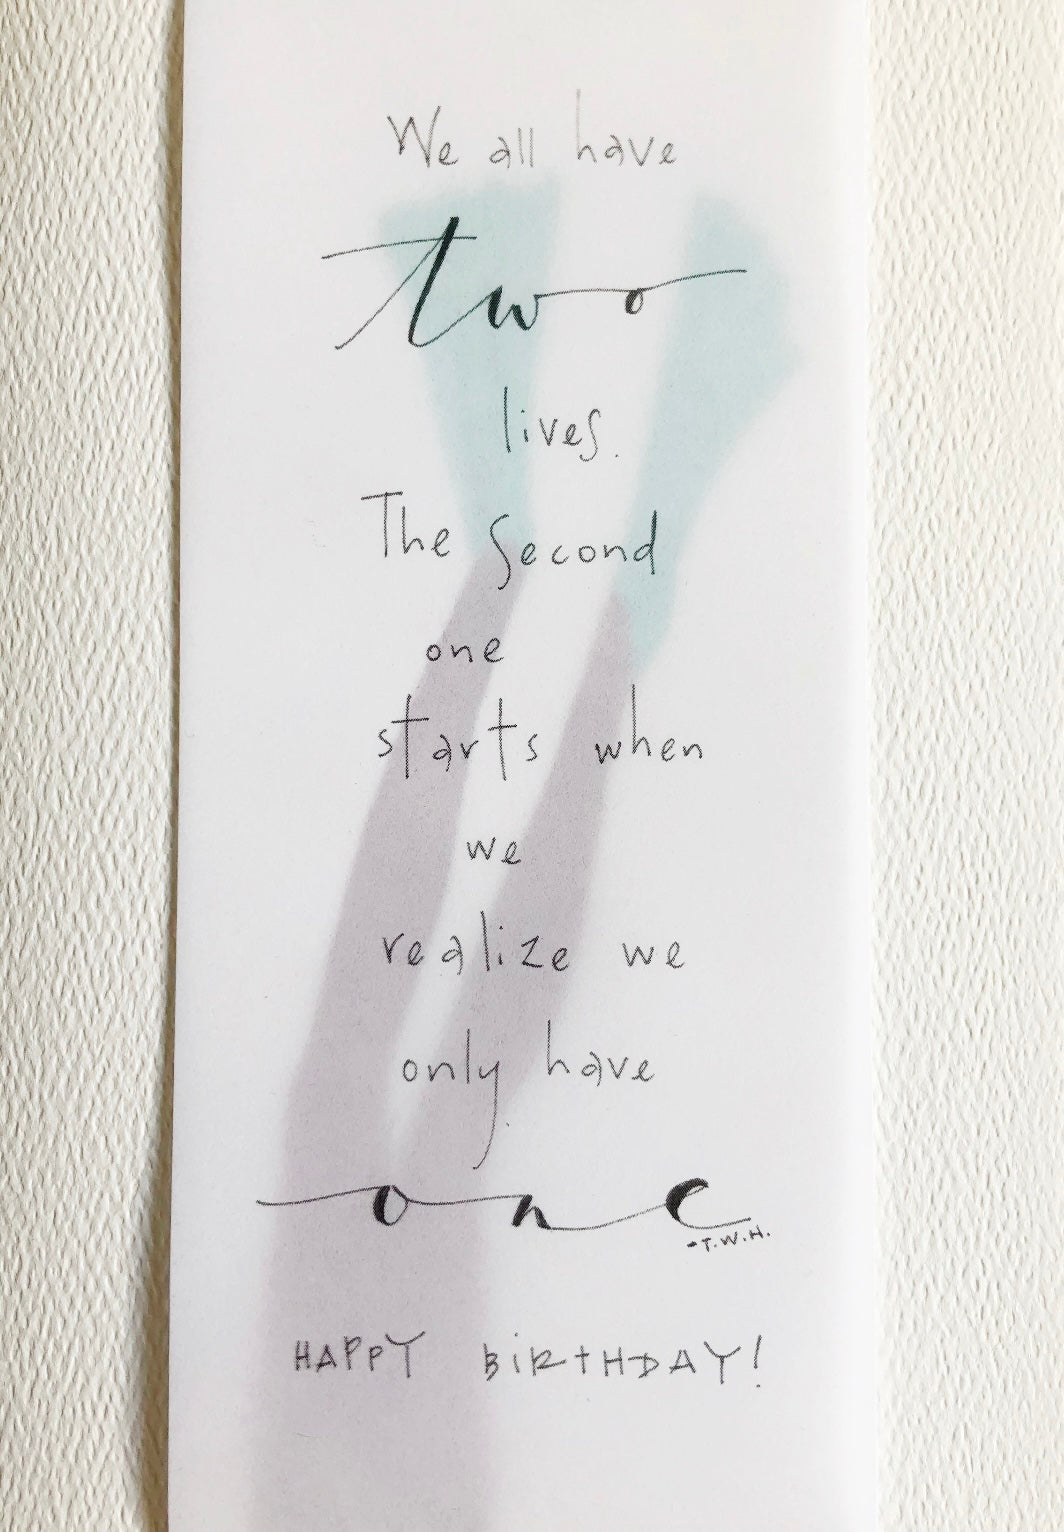 We all have
two
lives.
The Second
one
starts when
we
realize we
only have
one
-T.W.H.
HAPPY BiRtHDAY!